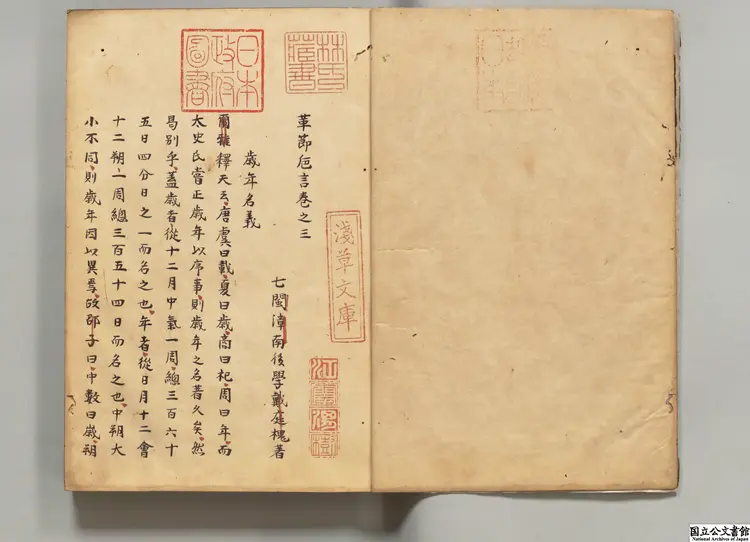 革節卮言卷之三
七閩漳南後學戴庭槐著
歲年名義
爾雅釋天云唐虞曰載夏曰歲商曰祀周曰年而
太史氏嘗正歲年以序事則歲年之名著久矣然
曷別乎蓋歲者從十二月中氣一周總三百六十
五日四分日之一而名之也年者從日月十二會
十二朔一周總三百五十四日而名之也中朔大
小不同則歲年因以異焉故邵子曰中數曰歲朔
日本政府圖書
林氏藏書
淺草文庫
江雲渭樹
国立公文書館
National Archives of Japan